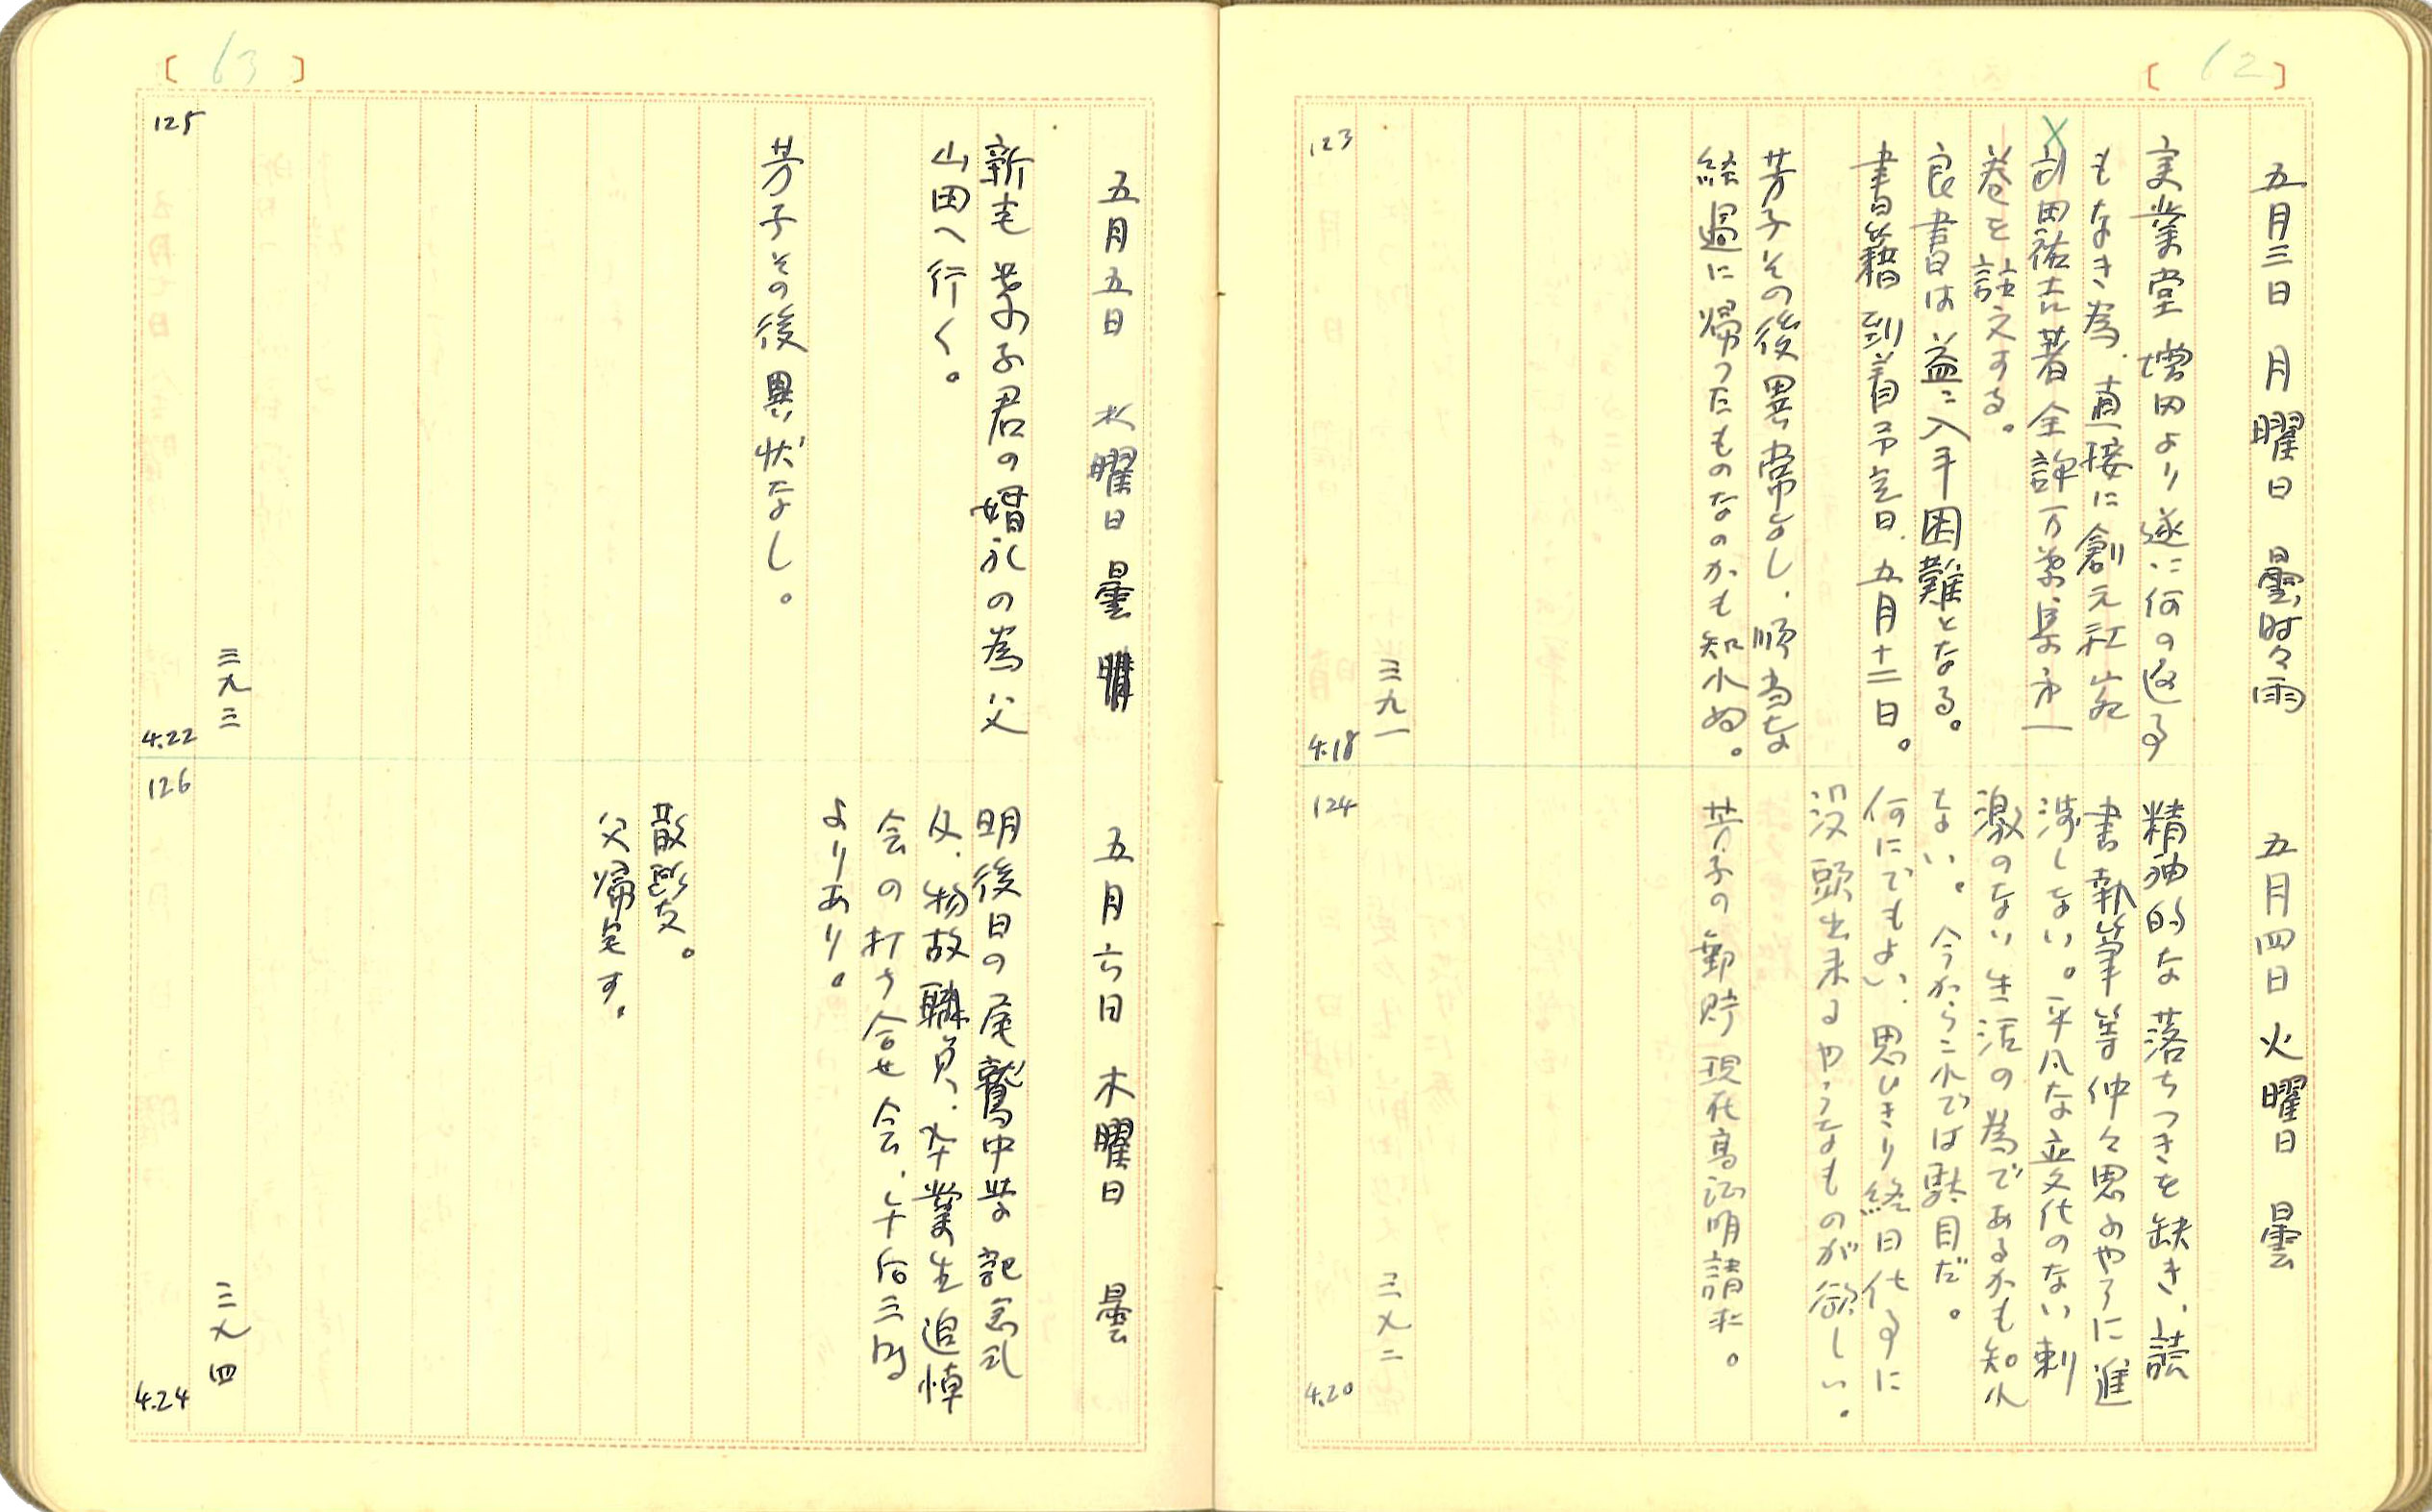 [62]
五月三日 月曜日 曇時々雨
実業堂 増田より遂に何の返事
もなき為、直接に創元社宛
武田祐吉著全詳万葉集第一
巻を註文する。
良書は益〻入手困難となる。
書籍到着予定日、五月十二日。
芳子その後異常なし、順当な
経過に帰ったものなのかも知れぬ。
三九一
123
4.18
五月四日 火曜日 曇
精神的な落ちつきを欠き、読
書執筆等仲々思ふやうに進
渉しない。平凡な変化のない刺
激のない生活の為であるかも知れ
ない。今からこれでは駄目だ。
何にでもよい、思ひきり終日仕事に
没頭出来るやうなものが欲しい。
芳子の郵貯現在高証明請求。
三九二
124
4.20
[63]
五月五日 水曜日 曇
新宅 君の婚礼の為父
山田へ行く。
芳子その後異状なし。
三九三
125
4.22
五月六日 木曜日 曇
明後日の尾鷲中学記念式
及、物故職員、卒業生追悼
会の打ち合せ会、午后三時
よりあり。
散髪。
父帰宅す。
三九四
126
4.24